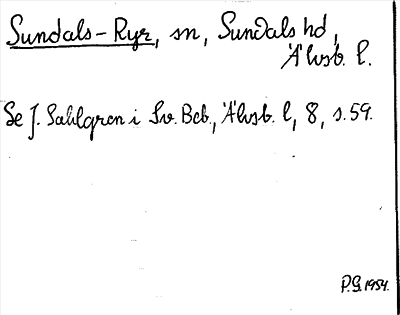 Sundals-Ryr, sn, Sundals hd,
Älvsb. l.
Se J. Sahlgren i Sv. Beb., Älvsb. l, 8, s. 59.
P.G. 1954.